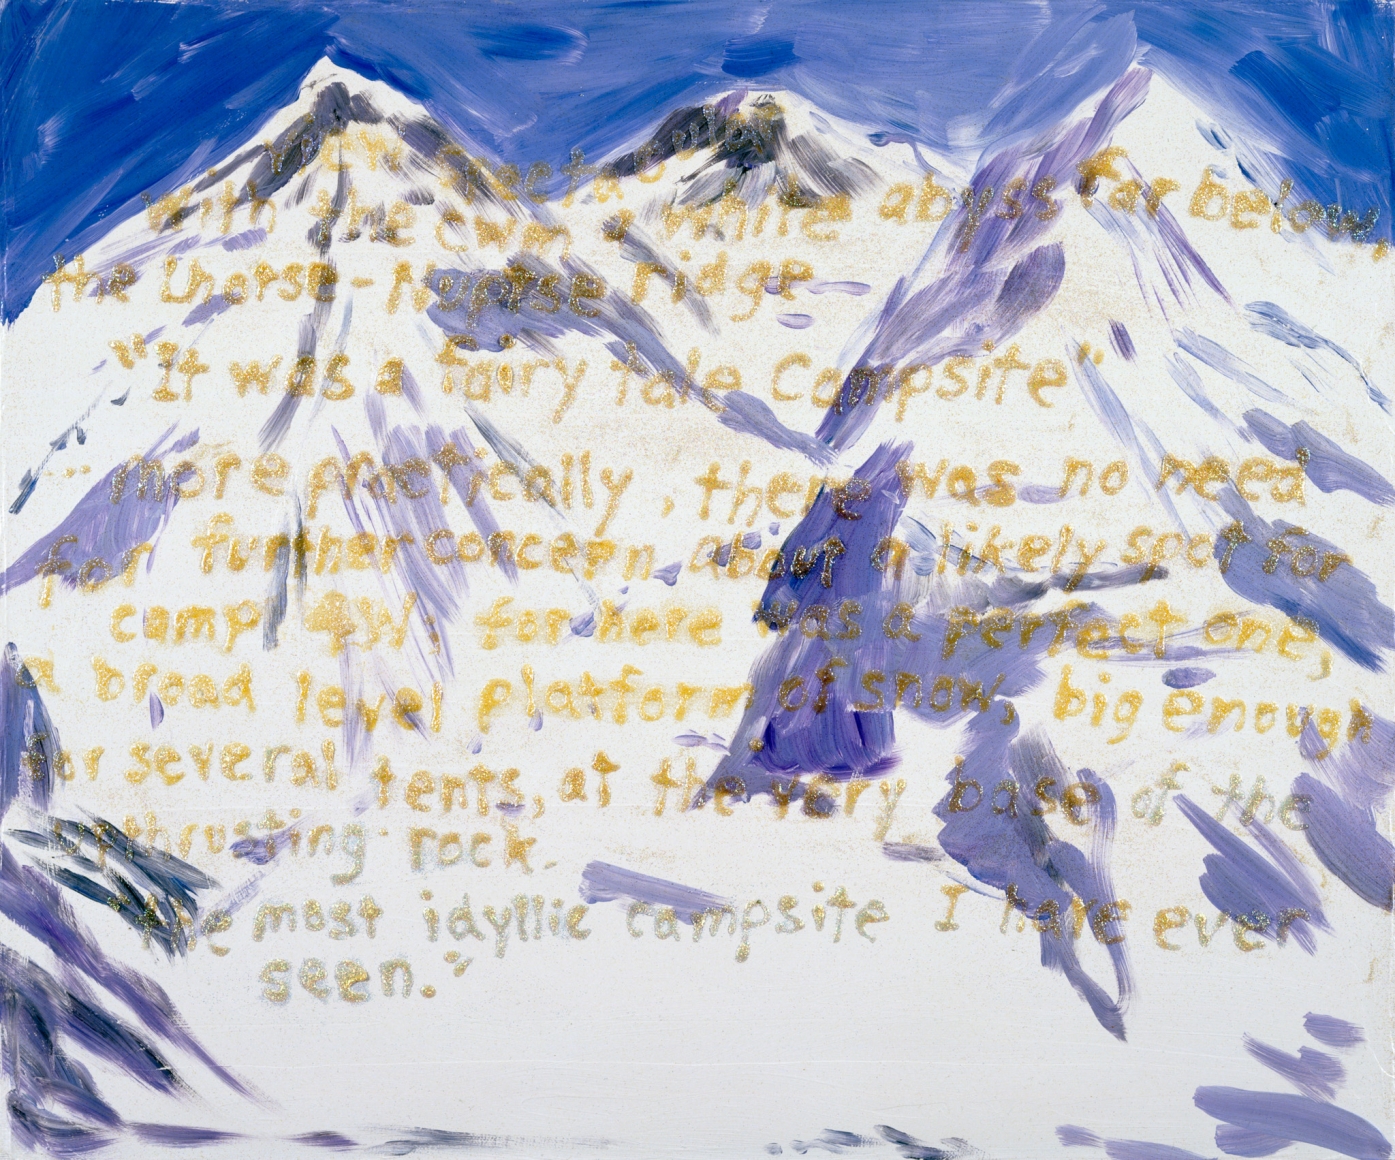 view spectacular
with the cwm a white abyss far below,
the Lhotse-Nuptse ridge
"It was a fairy tale Campsite"
... more practically, there was no need
for further concern about a likely spot for
camp 4W; for here was a perfect one,
a broad level platform of snow, big enough
for several tents, at the very base of the
upthrusting rock.
"the most idyllic campsite I have ever
seen."